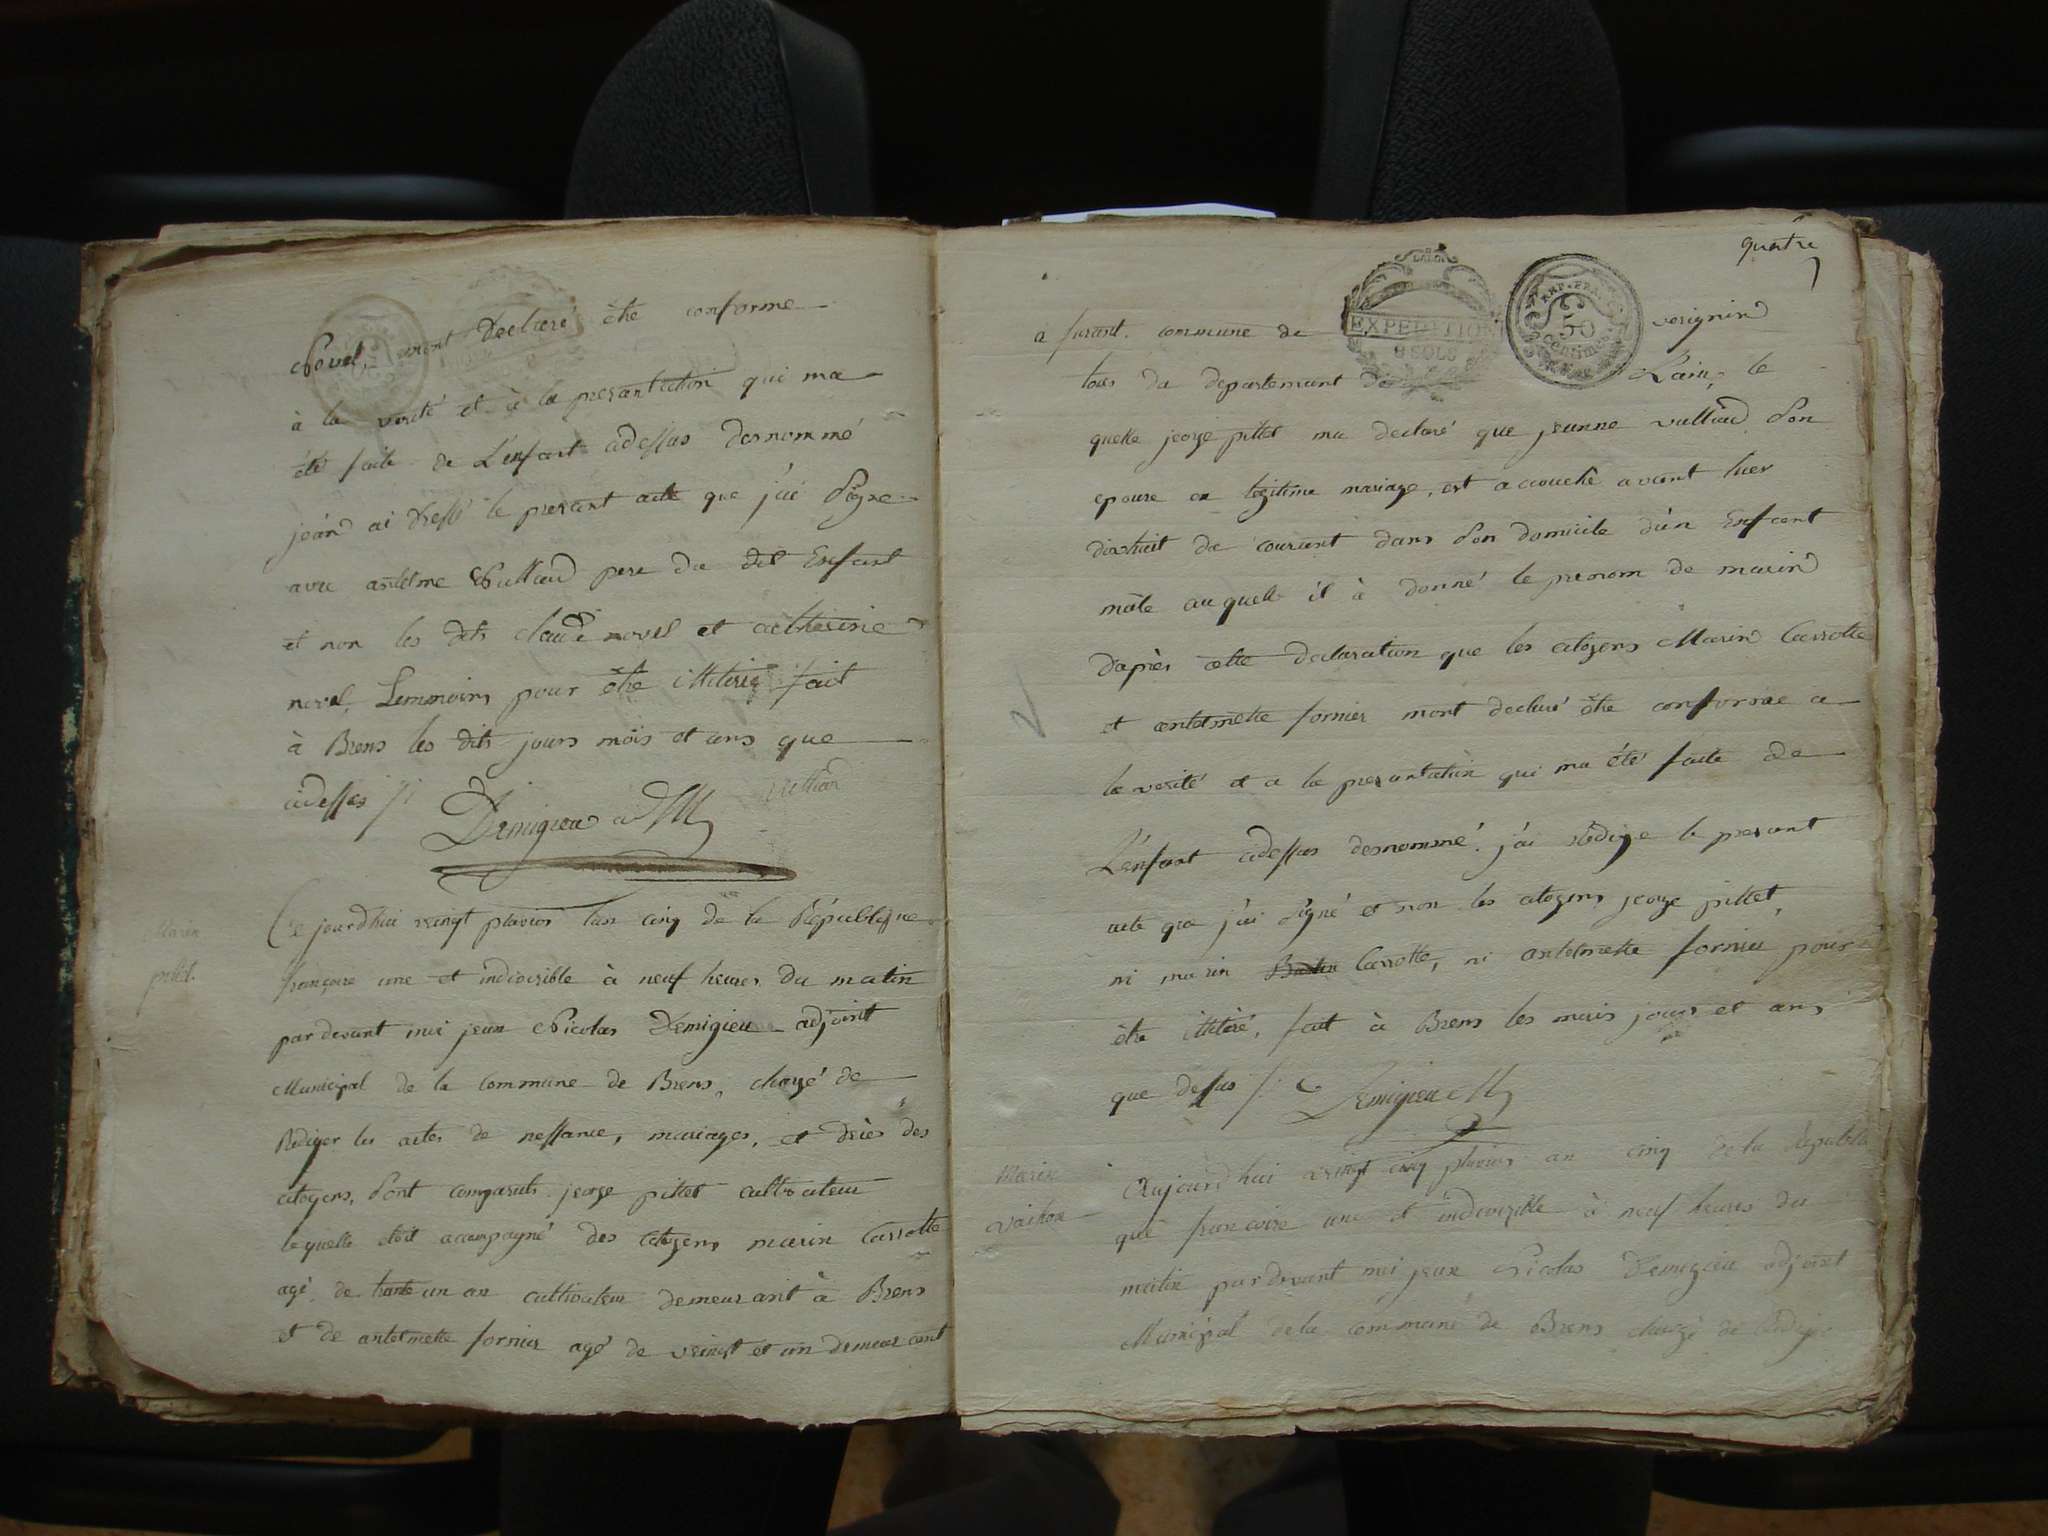 Novel, mont declaré être conforme
à la verité et à la presantation qui ma
été faite de L'enfant cidessus denommé
jean ai dressé le presant acte que j'ai signe
avec antelme Vulliod pere du dit Enfant
et non les dits claude novel et catherine
novel, temmoins pour être illiteré fait
à Brens les dits jours mois et ans que
cidessus /:
Demigieu a M
vulliod
Marin
pittet
Ce jourd'hui veingt pluvios lan cinq de la République
françaire une et indivisible à neuf heures du matin
par devant moi jean Nicolas Demigieu adjoint
Municipal de la commune de Brens, chargé de
Rediger les actes de nessance, mariages, et décès des
citoyens, sont comparuts jeorge pittet cultivateur
lequelle étoit accompagné des citoyens marin Carrotte
agé de trante un an cultivateur demeurant à Brens
et de antelmette fornier agé de veingt et un demeurant
quatre
LA LOI
EXPEDITION
8 SOLS
REP. FRA.
50
centimes
a furant. commune de verignin
tous du departement de L'ain, le
quelle jeorge pittet ma declaré que jeanne vulliod son
epouse en légitime mariage, est accouché avant hier
dixhuit du courant dans son domicile d'un Enfant
mâle auquelle il à donné le prenom de marin
daprès cette declaration que les citoyens Marin Carrotte
et antelmette fornier mont declaré être conforme a
la verité et a la presantation qui ma été faite de
L'enfant cidessus denommé. j'ai rédige le presant
acte que j'ai signé et non les citoyens jeorge pittet,
ni marin Carrotte, ni antelmette fornier pour
être illiteré, fait à Brens les mois jours et ans
que dessus /:
Demigieu a M
Marin
vachon
Aujourd'hui veingt cinq pluvios an cinq de la Republi
que francoire une et indivisible à neuf heures du
matin par devant moi jean Nicolas Demigieu adjoint
Municipal de la commune de Brens chargé de Rediger